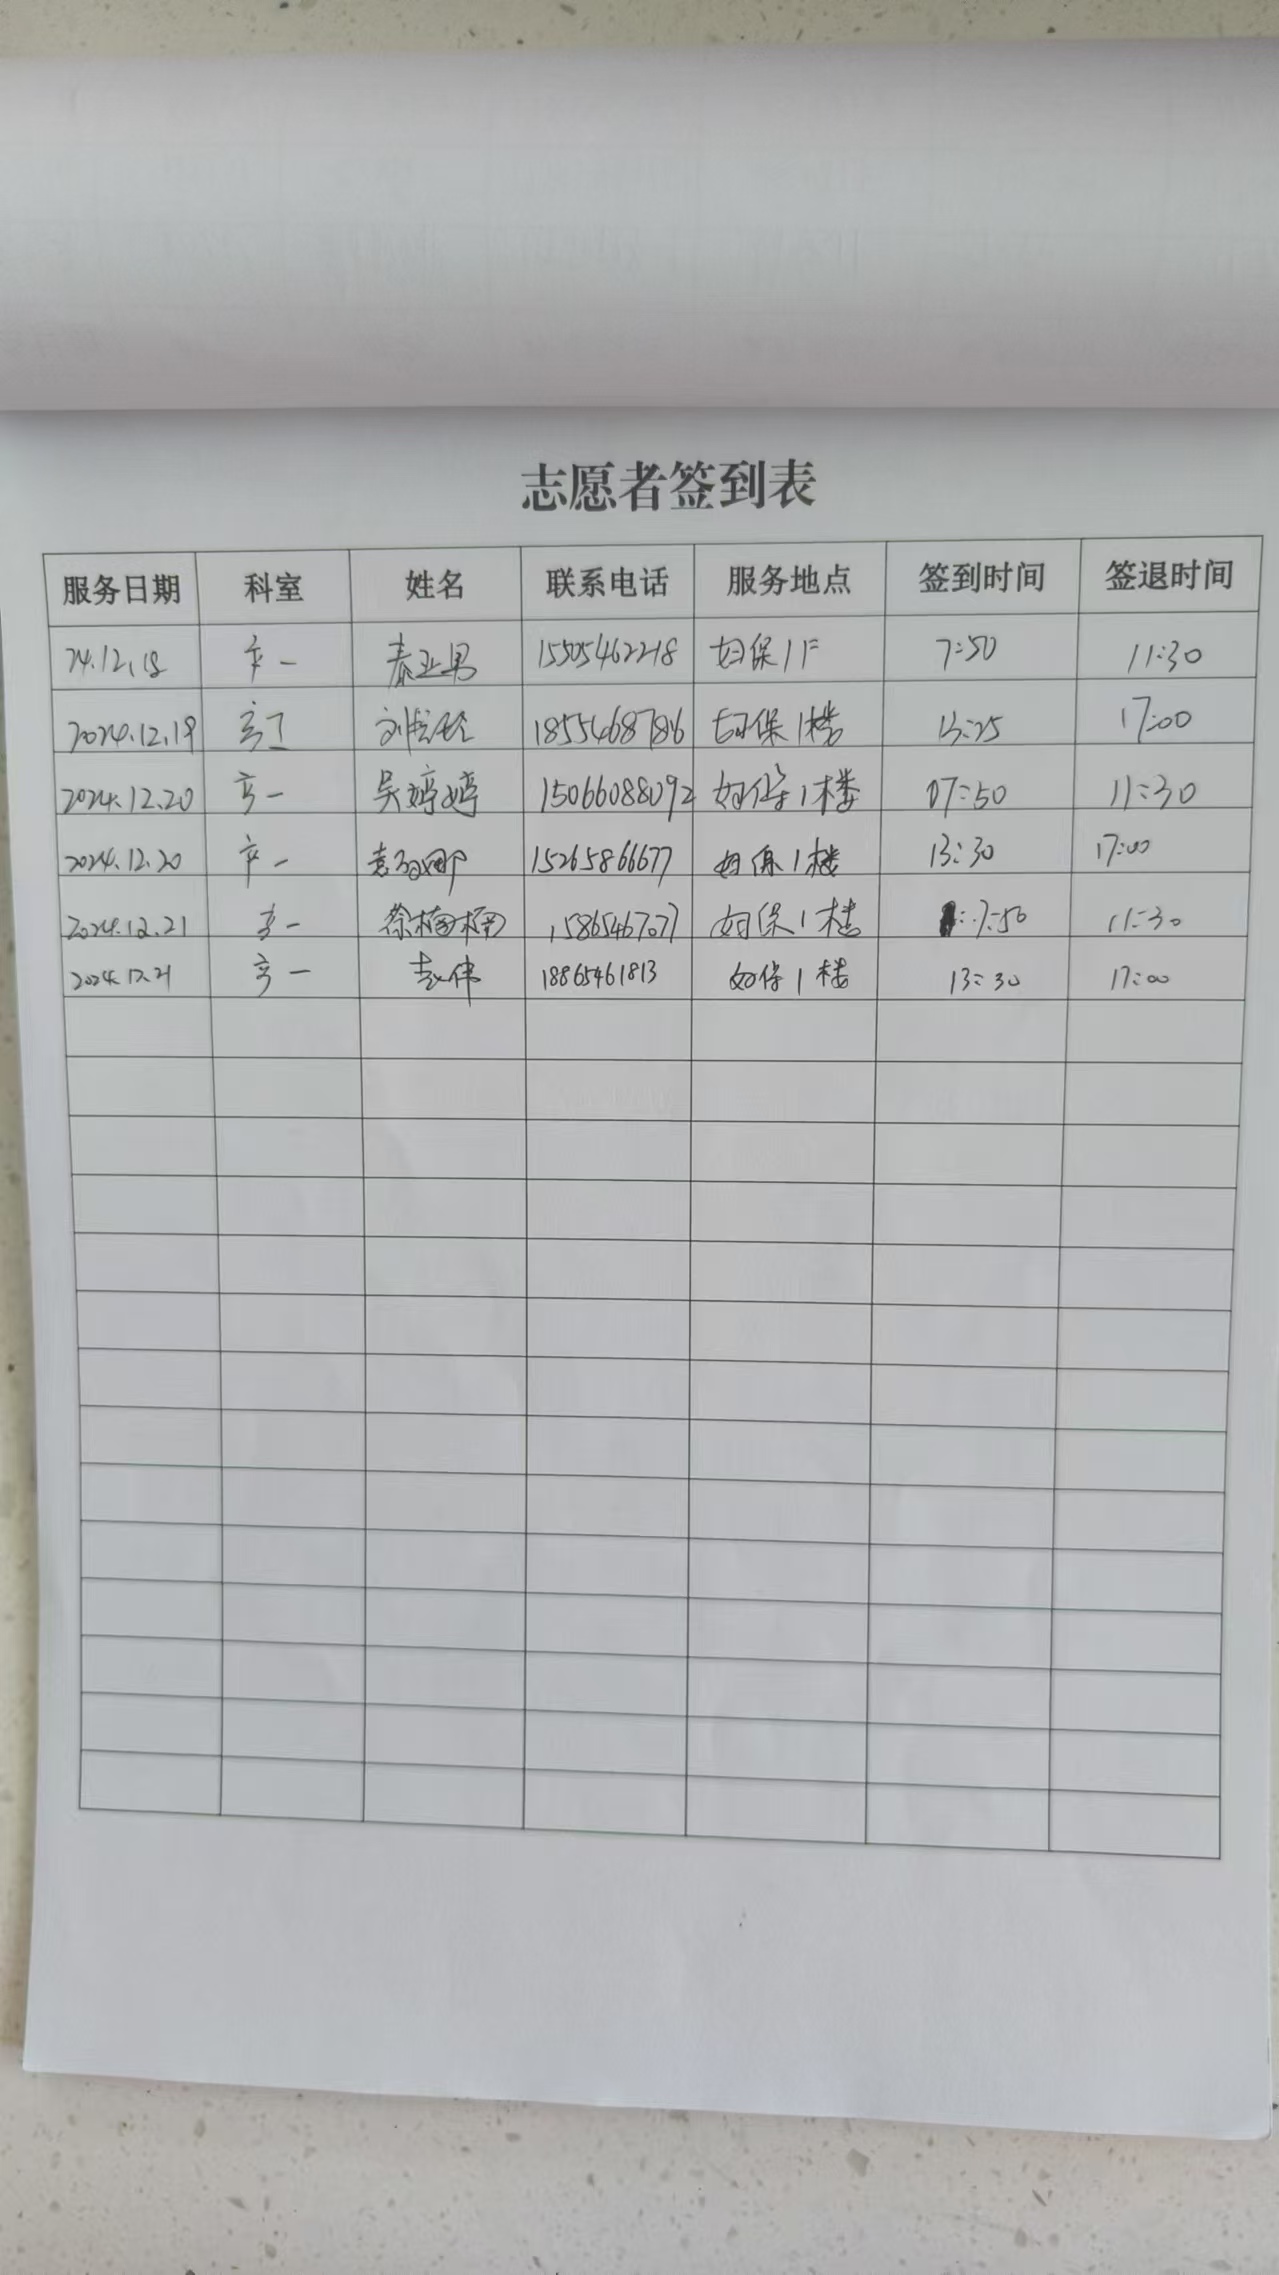 志愿者签到表
服务日期 科室 姓名 联系电话 服务地点 签到时间 签退时间
24.12.18 一 秦亚男 15505462218 妇保1F 7:50 11:30
2024.12.19 刘 18554687816 妇保1楼 13:25 17:00
2024.12.20 一 吴婷婷 15066088092 妇保1楼 07:50 11:30
2024.12.20 一 袁 娜 15265866677 妇保1楼 13:30 17:00
2024.12.21 一 徐楠楠 15865467077 妇保1楼 7:50 11:30
2024.12.21 一 赵伟 18865461813 妇保1楼 13:30 17:00